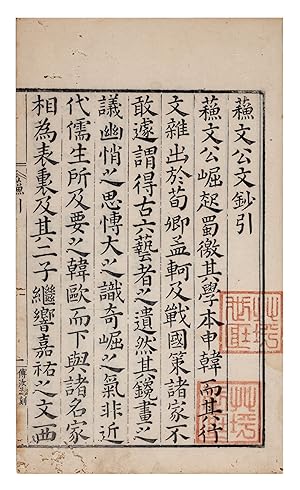 蘓文公文鈔引
蘓文公崛起蜀徼其學本申韓而其行
文雜出於荀卿孟軻及戰國策諸家不
敢遽謂得古六藝者之遺然其鏡畫之
議幽悄之思博大之識奇崛之氣非近
代儒生所及要之韓歐而下與諸名家
相為表裏及其二子繼響嘉祐之文西